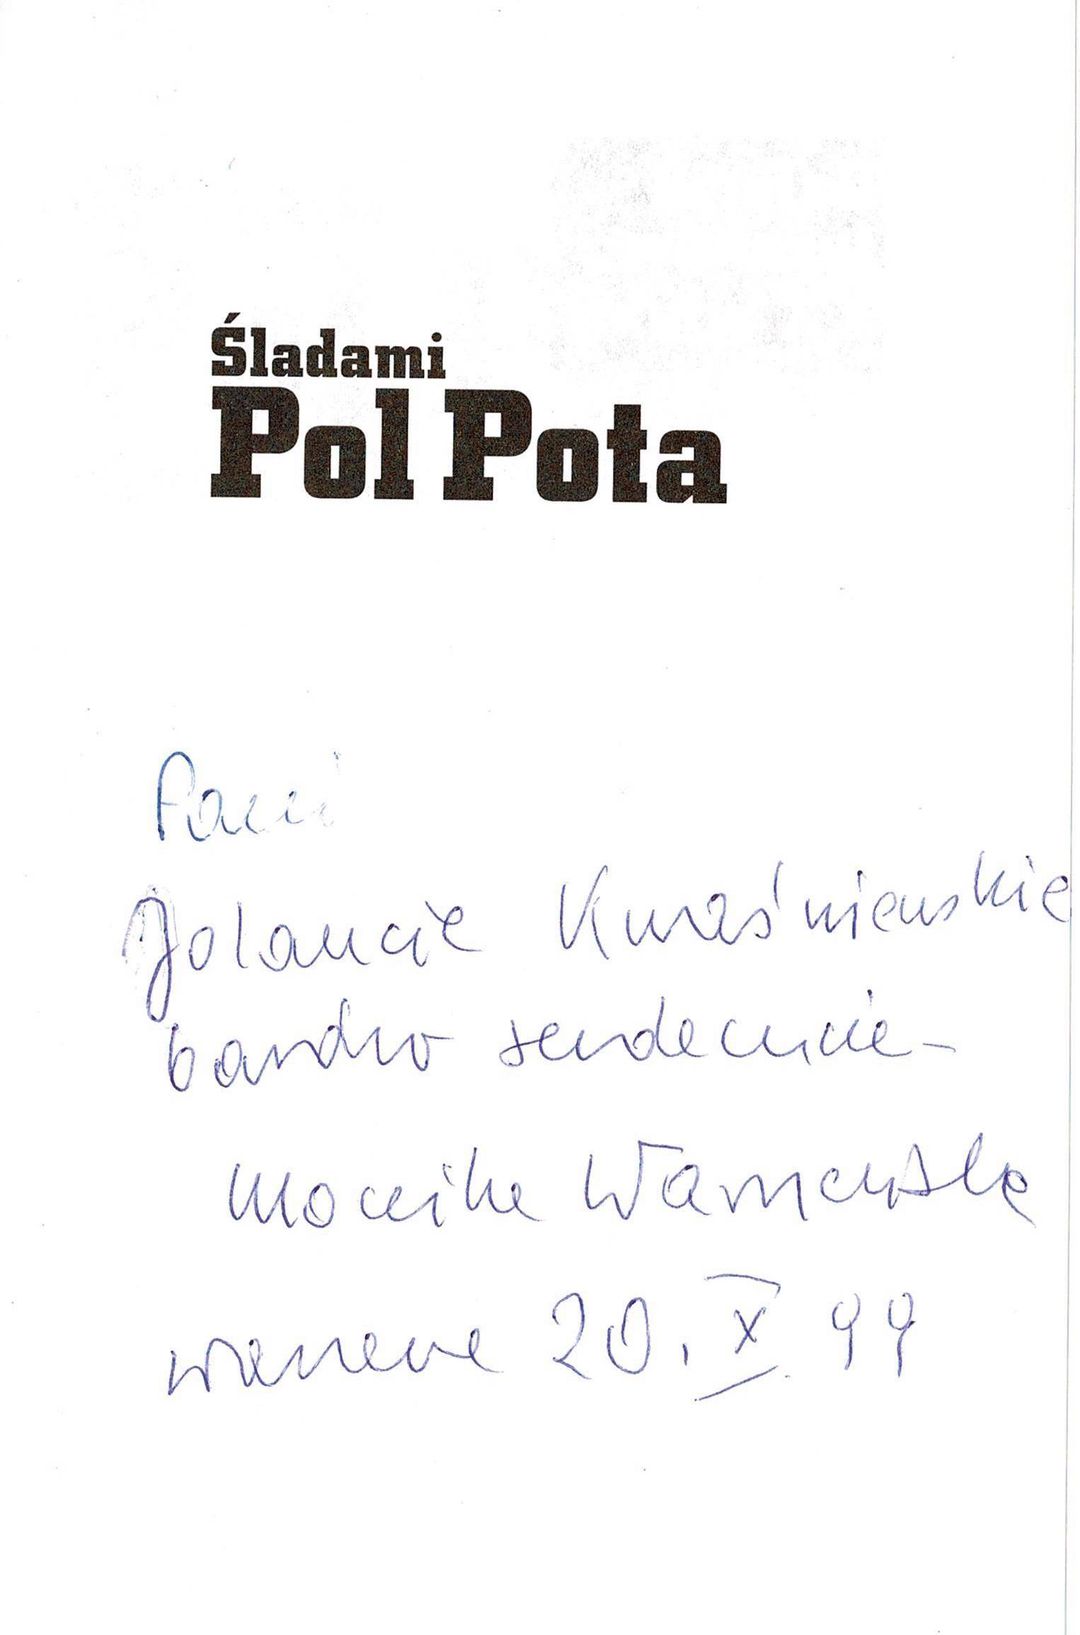 Śladami
Pol Pota
Pani
Jolancie Kwaśniewskie
bardzo serdecznie -
Monika Warneńska
Warszawa 20. X 99